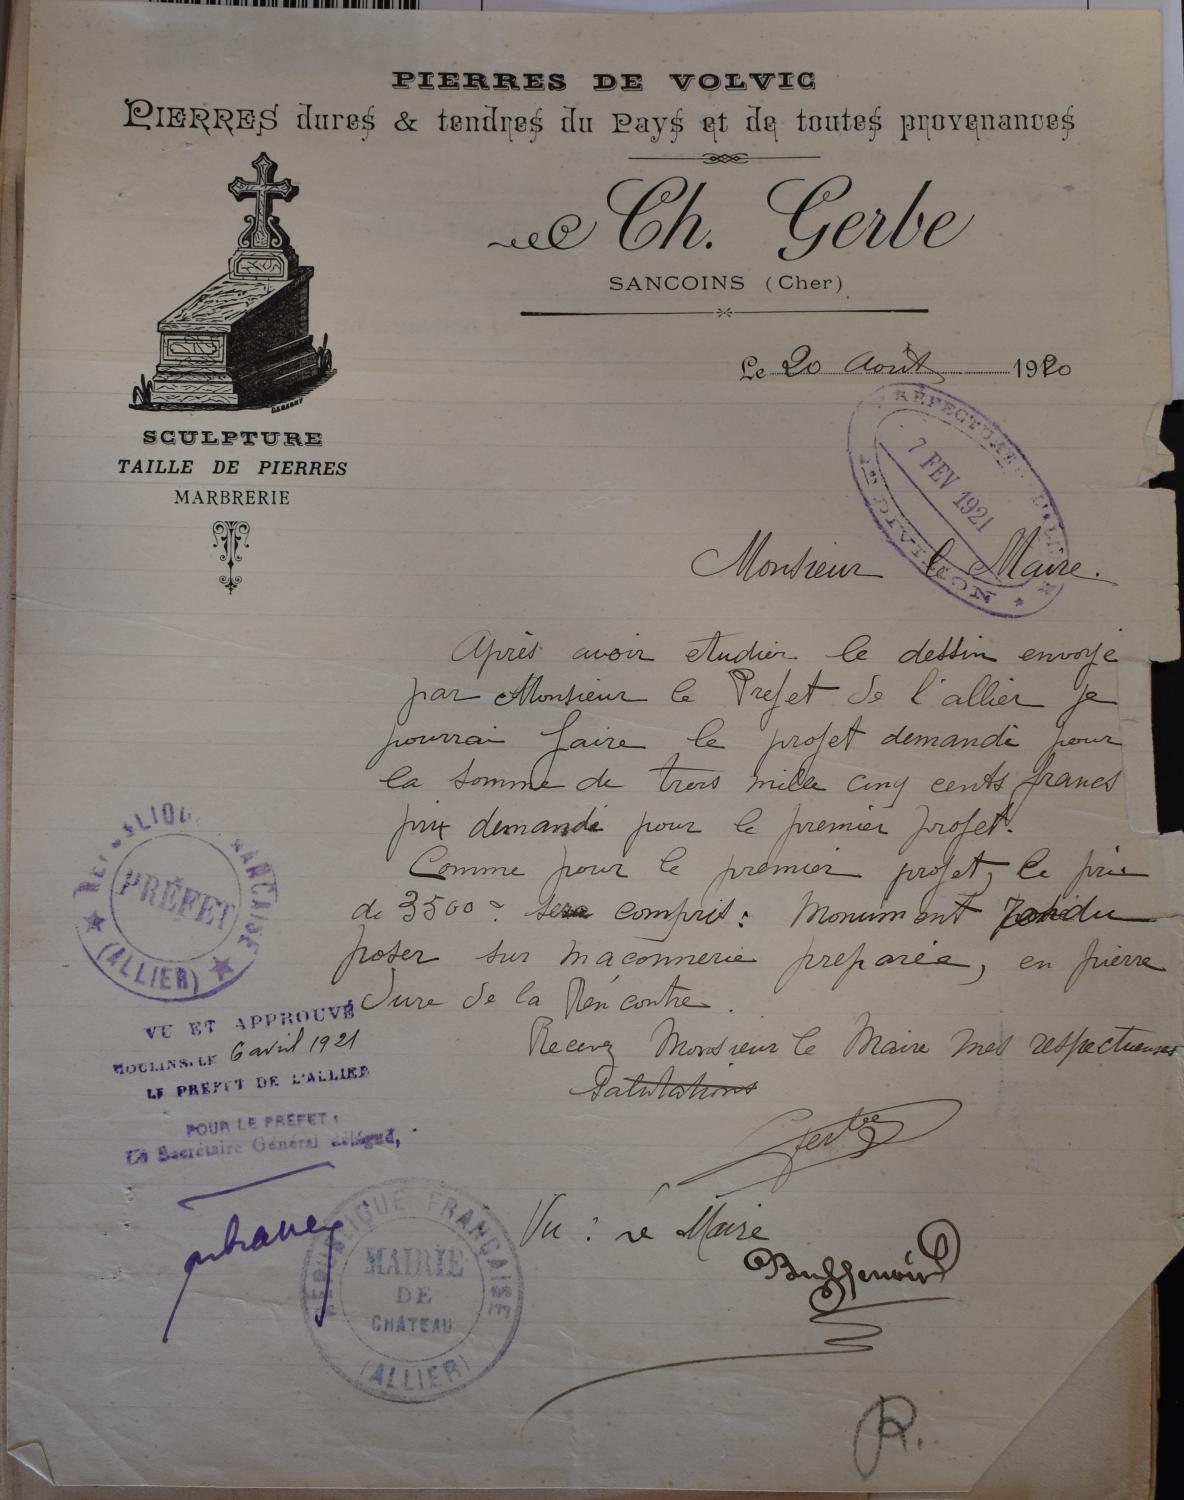 PIERRES DE VOLVIC
PIERRES dures & tendres du Pays et de toutes provenances
Ch. Gerbe
SANCOINS (Cher)
Le 20 Août 1920
SCULPTURE
TAILLE DE PIERRES
MARBRERIE
PRÉFECTURE DE L'ALLIER
7 FEV 1921
1re DIVISION
Monsieur le Maire.
Après avoir etudier le dessin envoyé
par Monsieur le Prefet de l'allier je
pourrai faire le projet demandé pour
la somme de trois mille cinq cents francs
prix demandé pour le premier projet.
Comme pour le premier projet, le prix
de 3500 sera compris: Monument rendu
poser sur maconnerie preparée, en pierre
dure de la Rencontre.
Recevez Monsieur le Maire mes respectueuses
Salutations
Gerbe
RÉPUBLIQUE FRANÇAISE
PRÉFET
(ALLIER)
VU ET APPROUVÉ
MOULINS, LE 6 avril 1921
LE PRÉFET DE L'ALLIER
POUR LE PRÉFET:
Le Secrétaire Général délégué,
Vu: le Maire
Buffenoir
RÉPUBLIQUE FRANÇAISE
MAIRIE
DE
CHÂTEAU
(ALLIER)
R.